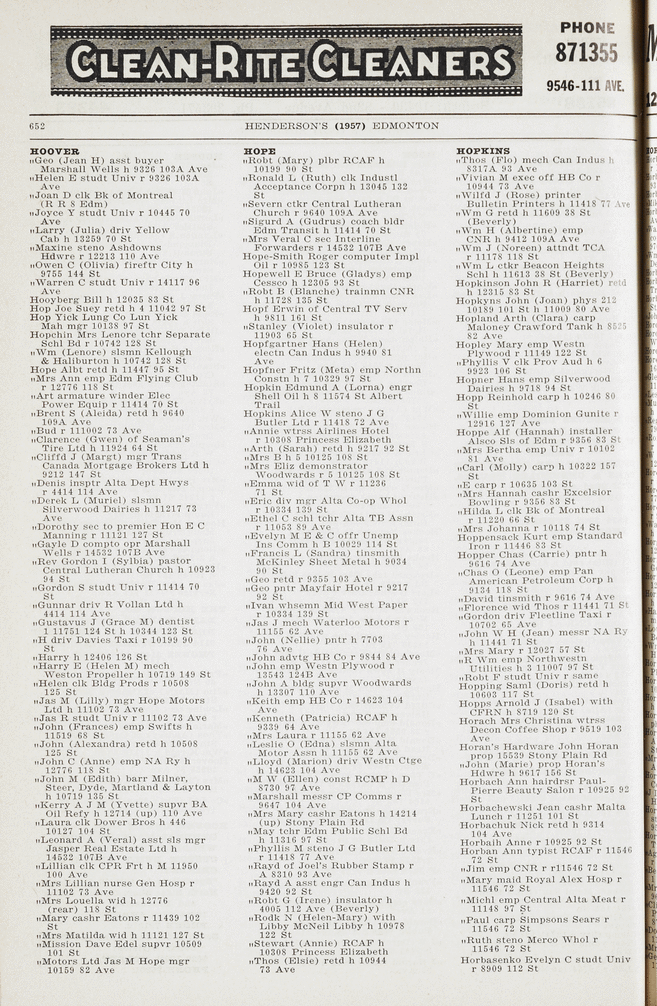 CLEAN-RITE CLEANERS
PHONE
871355
9546-111 AVE.
652
HENDERSON'S (1957) EDMONTON
HOOVER
„Geo (Jean H) asst buyer
Marshall Wells h 9326 103A Ave
„Helen E studt Univ r 9326 103A
Ave
„Joan D clk Bk of Montreal
(R R 8 Edm)
„Joyce Y studt Univ r 10445 70
Ave
„Larry (Julia) driv Yellow
Cab h 13259 70 St
„Maxine steno Ashdowns
Hdwre r 12213 110 Ave
„Owen C (Olivia) fireftr City h
9755 144 St
„Warren C studt Univ r 14117 96
Ave
Hooyberg Bill h 12035 83 St
Hop Joe Suey retd h 4 11042 97 St
Hop Yick Lung Co Lun Yick
Mah mgr 10138 97 St
Hopchin Mrs Lenore tchr Separate
Schl Bd r 10742 128 St
„Wm (Lenore) slsmn Kellough
& Haliburton h 10742 128 St
Hope Albt retd h 11447 95 St
„Mrs Ann emp Edm Flying Club
r 12776 118 St
„Art armature winder Elec
Power Equip r 11414 70 St
„Brent S (Aleida) retd h 9640
109A Ave
„Bud r 111002 73 Ave
„Clarence (Gwen) of Seaman's
Tire Ltd h 11924 64 St
„Cliffd J (Margt) mgr Trans
Canada Mortgage Brokers Ltd h
9212 147 St
„Denis insptr Alta Dept Hwys
r 4414 114 Ave
„Derek L (Muriel) slsmn
Silverwood Dairies h 11217 73
Ave
„Dorothy sec to premier Hon E C
Manning r 11121 127 St
„Gayle D compto opr Marshall
Wells r 14532 107B Ave
„Rev Gordon I (Sylbia) pastor
Central Lutheran Church h 10923
94 St
„Gordon S studt Univ r 11414 70
St
„Gunnar driv R Vollan Ltd h
4414 114 Ave
„Gustavus J (Grace M) dentist
1 11751 124 St h 10344 123 St
„H driv Davies Taxi r 10199 90
St
„Harry h 12406 126 St
„Harry E (Helen M) mech
Weston Propeller h 10719 149 St
„Helen clk Bldg Prods r 10508
125 St
„Jas M (Lilly) mgr Hope Motors
Ltd h 11102 73 Ave
„Jas R studt Univ r 11102 73 Ave
„John (Frances) emp Swifts h
11519 68 St
„John (Alexandra) retd h 10508
125 St
„John C (Anne) emp NA Ry h
12776 118 St
„John M (Edith) barr Milner,
Steer, Dyde, Martland & Layton
h 10719 135 St
„Kerry A J M (Yvette) supvr BA
Oil Refy h 12714 (up) 110 Ave
„Laura clk Dower Bros h 446
10127 104 St
„Leonard A (Veral) asst sls mgr
Jasper Real Estate Ltd h
14532 107B Ave
„Lillian clk CPR Frt h M 11950
100 Ave
„Mrs Lillian nurse Gen Hosp r
11102 73 Ave
„Mrs Louella wid h 12776
(rear) 118 St
„Mary cashr Eatons r 11439 102
St
„Mrs Matilda wid h 11121 127 St
„Mission Dave Edel supvr 10509
101 St
„Motors Ltd Jas M Hope mgr
10159 82 Ave
HOPE
„Robt (Mary) plbr RCAF h
10199 90 St
„Ronald L (Ruth) clk Industl
Acceptance Corpn h 13045 132
St
„Severn ctkr Central Lutheran
Church r 9640 109A Ave
„Sigurd A (Gudrus) coach bldr
Edm Transit h 11414 70 St
„Mrs Veral C sec Interline
Forwarders r 14532 107B Ave
Hope-Smith Roger computer Impl
Oil r 10985 123 St
Hopewell E Bruce (Gladys) emp
Cessco h 12305 93 St
„Robt B (Blanche) trainmn CNR
h 11728 135 St
Hopf Erwin of Central TV Serv
h 9811 161 St
„Stanley (Violet) insulator r
11903 65 St
Hopfgartner Hans (Helen)
electn Can Indus h 9940 81
Ave
Hopfner Fritz (Meta) emp Northn
Constn h 7 10329 97 St
Hopkin Edmund A (Lorna) engr
Shell Oil h 8 11574 St Albert
Trail
Hopkins Alice W steno J G
Butler Ltd r 11418 72 Ave
„Annie wtrss Airlines Hotel
r 10308 Princess Elizabeth
„Arth (Sarah) retd h 9217 92 St
„Mrs B h 5 10125 108 St
„Mrs Eliz demonstrator
Woodwards r 5 10125 108 St
„Emma wid of T W r 11236
71 St
„Eric div mgr Alta Co-op Whol
r 10334 139 St
„Ethel C schl tchr Alta TB Assn
r 11053 89 Ave
„Evelyn M E & C offr Unemp
Ins Comm h B 10029 114 St
„Francis L (Sandra) tinsmith
McKinley Sheet Metal h 9034
90 St
„Geo retd r 9355 103 Ave
„Geo pntr Mayfair Hotel r 9217
92 St
„Ivan whsemn Mid West Paper
r 10334 139 St
„Jas J mech Waterloo Motors r
11155 62 Ave
„John (Nellie) pntr h 7703
76 Ave
„John advtg HB Co r 9844 84 Ave
„John emp Westn Plywood r
13543 124B Ave
„John A bldg supvr Woodwards
h 13307 110 Ave
„Keith emp HB Co r 14623 104
Ave
„Kenneth (Patricia) RCAF h
9339 64 Ave
„Mrs Laura r 11155 62 Ave
„Leslie O (Edna) slsmn Alta
Motor Assn h 11155 62 Ave
„Lloyd (Marion) driv Westn Ctge
h 14623 104 Ave
„M W (Ellen) const RCMP h D
8730 97 Ave
„Marshall messr CP Comms r
9647 104 Ave
„Mrs Mary cashr Eatons h 14214
(up) Stony Plain Rd
„May tchr Edm Public Schl Bd
h 11316 97 St
„Phyllis M steno J G Butler Ltd
r 11418 77 Ave
„Rayd of Joel's Rubber Stamp r
A 8310 93 Ave
„Rayd A asst engr Can Indus h
9420 92 St
„Robt G (Irene) insulator h
4005 112 Ave (Beverly)
„Rodk N (Helen-Mary) with
Libby McNeil Libby h 10978
122 St
„Stewart (Annie) RCAF h
10308 Princess Elizabeth
„Thos (Elsie) retd h 10944
73 Ave
HOPKINS
„Thos (Flo) mech Can Indus h
8317A 93 Ave
„Vivian M exec off HB Co r
10944 73 Ave
„Wilfd J (Rose) printer
Bulletin Printers h 11418 77 Ave
„Wm G retd h 11609 38 St
(Beverly)
„Wm H (Albertine) emp
CNR h 9412 109A Ave
„Wm J (Noreen) attndt TCA
r 11178 118 St
„Wm L ctkr Beacon Heights
Schl h 11613 38 St (Beverly)
Hopkinson John R (Harriet) retd
h 12315 83 St
Hopkyns John (Joan) phys 212
10189 101 St h 11009 80 Ave
Hopland Arth (Clara) carp
Maloney Crawford Tank h 8525
82 Ave
Hopley Mary emp Westn
Plywood r 11149 122 St
„Phyllis V clk Prov Aud h 6
9923 106 St
Hopner Hans emp Silverwood
Dairies h 9718 94 St
Hopp Reinhard carp h 10246 80
St
„Willie emp Dominion Gunite r
12916 127 Ave
Hoppe Alf (Hannah) installer
Alsco Sls of Edm r 9356 83 St
„Mrs Bertha emp Univ r 10102
81 Ave
„Carl (Molly) carp h 10322 157
St
„E carp r 10635 103 St
„Mrs Hannah cashr Excelsior
Bowling r 9356 83 St
„Hilda L clk Bk of Montreal
r 11220 66 St
„Mrs Johanna r 10118 74 St
Hoppensack Kurt emp Standard
Iron r 11446 83 St
Hopper Chas (Carrie) pntr h
9616 74 Ave
„Chas O (Leone) emp Pan
American Petroleum Corp h
9134 118 St
„David tinsmith r 9616 74 Ave
„Florence wid Thos r 11441 71 St
„Gordon driv Fleetline Taxi r
10702 65 Ave
„John W H (Jean) messr NA Ry
h 11441 71 St
„Mrs Mary r 12027 57 St
„R Wm emp Northwestn
Utilities h 3 11007 97 St
„Robt F studt Univ r same
Hopping Saml (Doris) retd h
10603 117 St
Hopps Arnold J (Isabel) with
CFRN h 8719 120 St
Horach Mrs Christina wtrss
Decon Coffee Shop r 9519 103
Ave
Horan's Hardware John Horan
prop 15539 Stony Plain Rd
„John (Marie) prop Horan's
Hdwre h 9617 156 St
Horbach Ann hairdrsr Paul-
Pierre Beauty Salon r 10925 92
St
Horbachewski Jean cashr Malta
Lunch r 11251 101 St
Horbachuk Nick retd h 9314
104 Ave
Horbaih Anne r 10925 92 St
Horban Ann typist RCAF r 11546
72 St
„Jim emp CNR r r11546 72 St
„Mary maid Royal Alex Hosp r
11546 72 St
„Michl emp Central Alta Meat r
11148 97 St
„Paul carp Simpsons Sears r
11546 72 St
„Ruth steno Merco Whol r
11546 72 St
Horbasenko Evelyn C studt Univ
r 8909 112 St